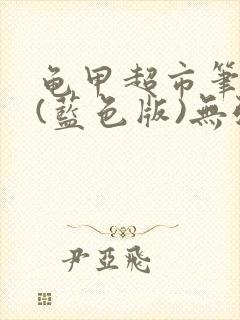 龟甲超市筆
(藍色版)無
尹亞飛